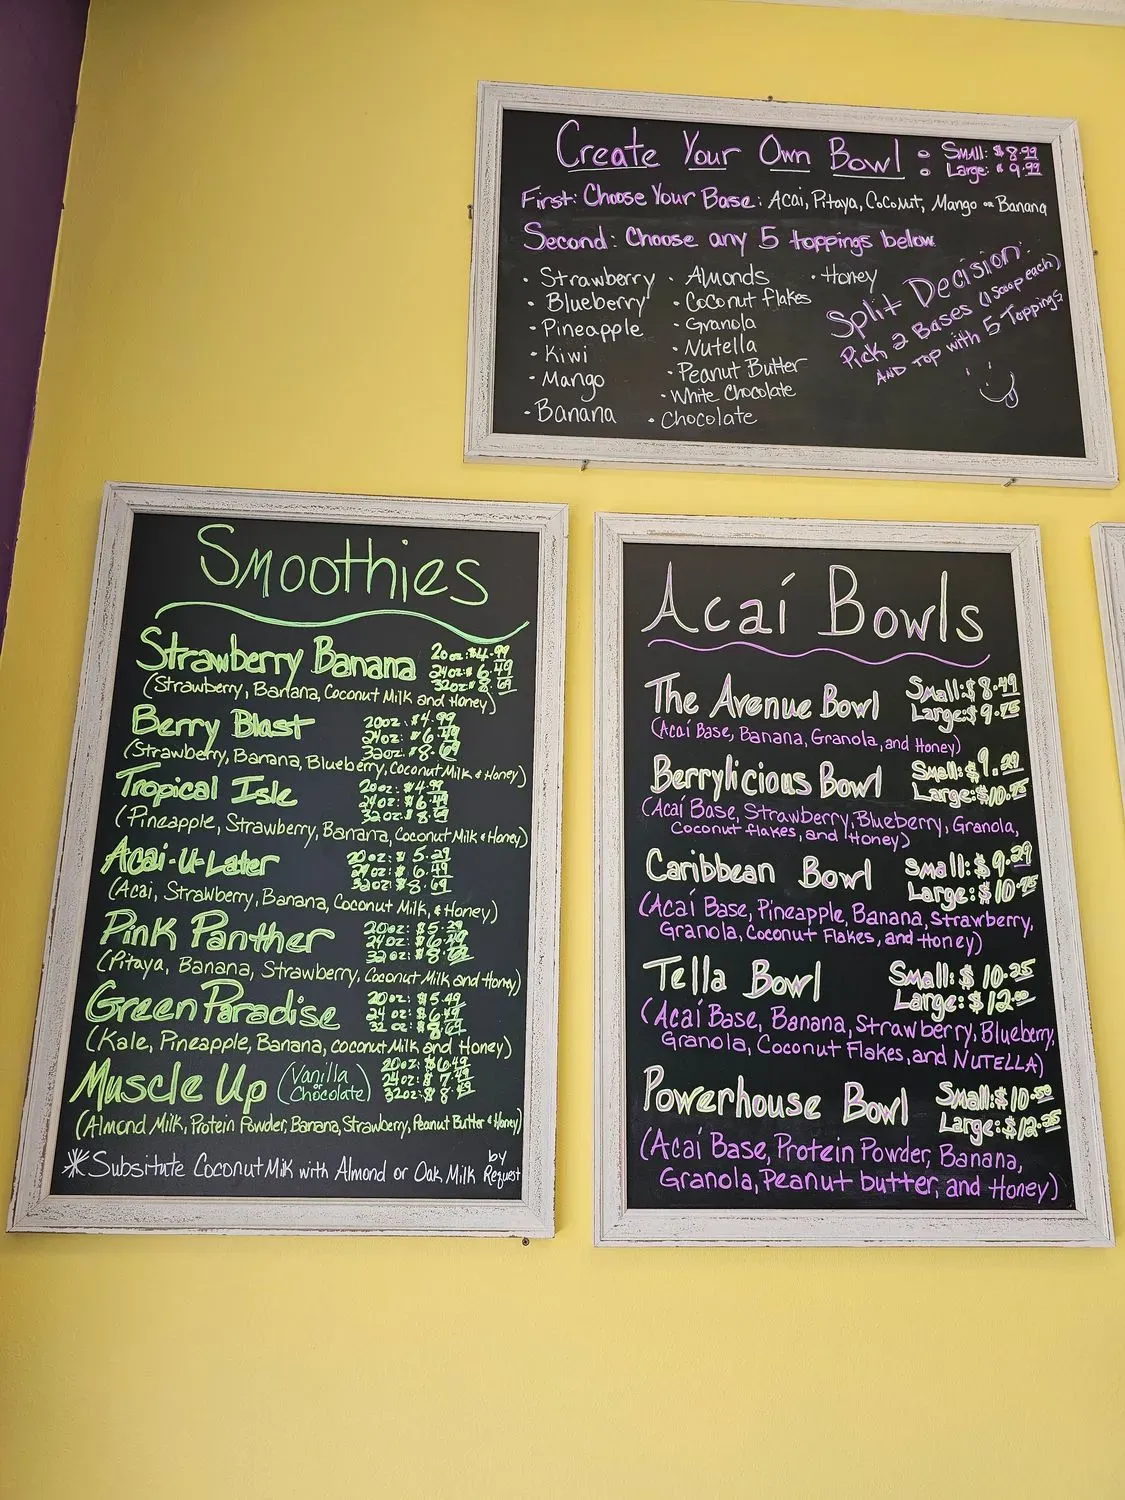 Create Your Own Bowl : Small: $8.99
Large: $9.99
First: Choose Your Base: Acai, Pitaya, Coconut, Mango or Banana
Second: Choose any 5 toppings below
• Strawberry
• Blueberry
• Pineapple
• Kiwi
• Mango
• Banana
• Almonds
• Coconut flakes
• Granola
• Nutella
• Peanut Butter
• White Chocolate
• Chocolate
• Honey
Split Decision:
Pick 2 Bases (1 scoop each)
AND top with 5 Toppings
Smoothies
Strawberry Banana 20oz: $4.99
24oz: $6.49
32oz: $8.69
(Strawberry, Banana, Coconut Milk and Honey)
Berry Blast 20oz: $4.99
24oz: $6.49
32oz: $8.69
(Strawberry, Banana, Blueberry, Coconut Milk & Honey)
Tropical Isle 20oz: $4.99
24oz: $6.49
32oz: $8.69
(Pineapple, Strawberry, Banana, Coconut Milk & Honey)
Acai-U-Later 20oz: $5.29
24oz: $6.49
32oz: $8.69
(Acai, Strawberry, Banana, Coconut Milk, & Honey)
Pink Panther 20oz: $5.29
24oz: $6.49
32oz: $8.69
(Pitaya, Banana, Strawberry, Coconut Milk and Honey)
Green Paradise 20oz: $5.49
24oz: $6.49
32oz: $8.69
(Kale, Pineapple, Banana, coconut Milk and Honey)
Muscle Up (Vanilla or Chocolate) 20oz: $6.49
24oz: $7.49
32oz: $8.
(Almond Milk, Protein Powder, Banana, Strawberry, Peanut Butter & Honey)
* Subsitute Coconut Milk with Almond or Oak Milk by Request
Acaí Bowls
The Avenue Bowl Small: $8.49
Large: $9.75
(Acaí Base, Banana, Granola, and Honey)
Berrylicious Bowl Small: $9.29
Large: $10.75
(Acaí Base, Strawberry, Blueberry, Granola,
Coconut flakes, and Honey)
Caribbean Bowl Small: $9.29
Large: $10.75
(Acaí Base, Pineapple, Banana, Strawberry,
Granola, Coconut Flakes, and Honey)
Tella Bowl Small: $10.25
Large: $12.00
(Acaí Base, Banana, Strawberry, Blueberry,
Granola, Coconut Flakes, and NUTELLA)
Powerhouse Bowl Small: $10.50
Large: $12.25
(Acaí Base, Protein Powder, Banana,
Granola, Peanut butter, and Honey)